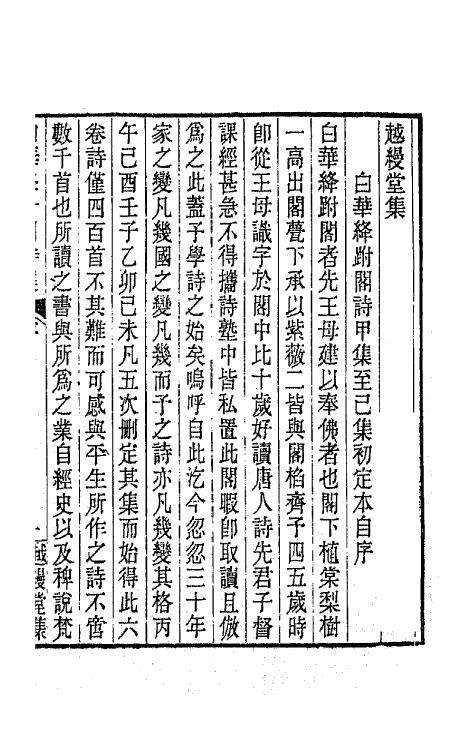 越縵堂集
白華絳跗閣詩甲集至己集初定本自序
白華絳跗閣者先王母建以奉佛者也閣下植棠梨樹
一高出閣甍下承以紫薇二皆與閣㮰齊予四五歲時
卽從王母識字於閣中比十歲好讀唐人詩先君子督
課經甚急不得攜詩塾中皆私置此閣暇卽取讀且倣
爲之此蓋予學詩之始矣嗚呼自此迄今忽忽三十年
家之變凡幾國之變凡幾而予之詩亦凡幾變其格丙
午己酉壬子乙卯己未凡五次刪定其集而始得此六
卷詩僅四百首不其難而可感與平生所作之詩不啻
數千首也所讀之書與所爲之業自經史以及稗說梵
越縵堂集